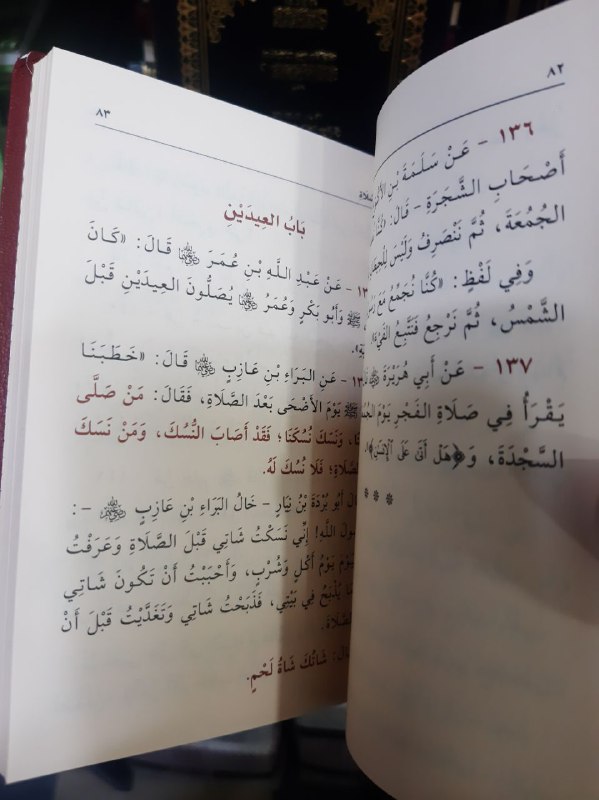 ٨٢
١٣٦ - عَنْ سَلَمَةَ بْنِ
أَصْحَابِ الشَّجَرَةِ - قَالَ:
الجُمُعَةَ، ثُمَّ نَنْصَرِفُ وَلَيْسَ
وَفِي لَفْظٍ: «كُنَّا نُجَمِّعُ مَعَ
الشَّمْسُ، ثُمَّ نَرْجِعُ فَنَتَتَبَّعُ الفَيْءَ».
١٣٧ - عَنْ أَبِي هُرَيْرَةَ
يَقْرَأُ فِي صَلَاةِ الفَجْرِ يَوْمَ
السَّجْدَةَ، وَ﴿هَلْ أَتَىٰ عَلَى ٱلْإِنسَٰنِ﴾
* * *
٨٣
بَابُ العِيدَيْنِ
- عَنْ عَبْدِ اللَّهِ بْنِ عُمَرَ ﵄ قَالَ: «كَانَ
ﷺ وَأَبُو بَكْرٍ وَعُمَرُ ﵄ يُصَلُّونَ العِيدَيْنِ قَبْلَ
- عَنِ البَرَاءِ بْنِ عَازِبٍ ﵄ قَالَ: «خَطَبَنَا
ﷺ يَوْمَ الأَضْحَى بَعْدَ الصَّلَاةِ، فَقَالَ: مَنْ صَلَّى
وَنَسَكَ نُسُكَنَا؛ فَقَدْ أَصَابَ النُّسُكَ، وَمَنْ نَسَكَ
فَلَا نُسُكَ لَهُ.
أَبُو بُرْدَةَ بْنُ نِيَارٍ - خَالُ البَرَاءِ بْنِ عَازِبٍ ﵄ - :
اللَّهِ! إِنِّي نَسَكْتُ شَاتِي قَبْلَ الصَّلَاةِ وَعَرَفْتُ
يَوْمُ أَكْلٍ وَشُرْبٍ، وَأَحْبَبْتُ أَنْ تَكُونَ شَاتِي
يُذْبَحُ فِي بَيْتِي، فَذَبَحْتُ شَاتِي وَتَغَدَّيْتُ قَبْلَ أَنْ
شَاتُكَ شَاةُ لَحْمٍ.